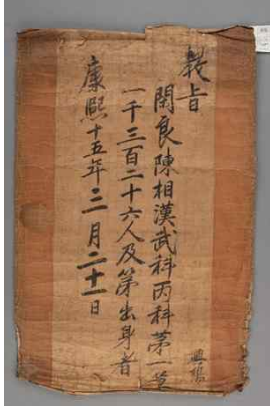 敎旨
閑良陳相漢武科丙科第一等
一千三百二十六人及第出身者
康熙十五年三月二十一日